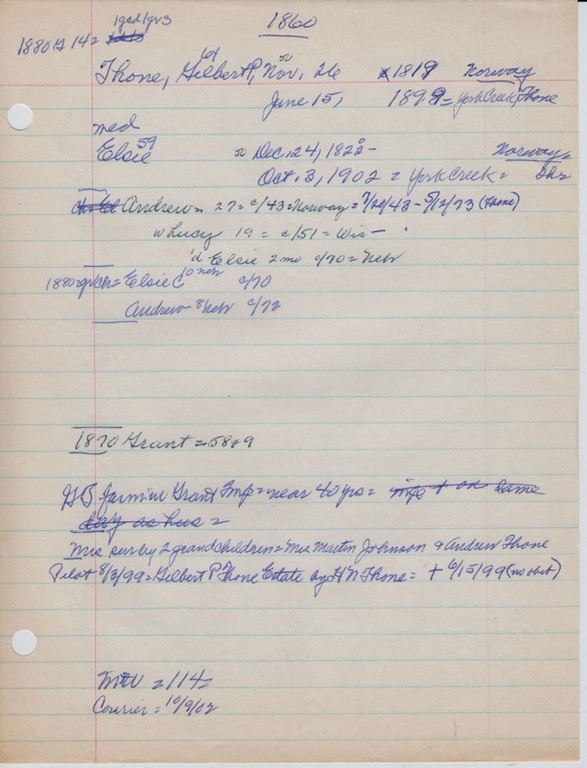 1860
1gsd1gv3
1880 G 14=
61 50
Thone, Gilbert P, Nov, 26 1819 Norway
June 15, 1899= York Creek, Thone
med
59
Elsie 50 Dec, 24, 1822 - Norway=
Oct. 3, 1902 = York Creek=
Andrew= 27= c/43=Norway= 7/20/43 - 5/12/73 (Thone)
w Lucy 19 = c/51 = Wis -
'd Elsie 2 mo c/70 = Nebr
1880 grch= Elsie C 10 nebr c/70
Andrew 8/Nebr c/72
1870 Grant = 58+9
farm in Grant Imp= near 40 yrs= same
day as hus =
Mrs surv by 2 grandchildren= Mrs Martin Johnson & Andrew Thone
Pilot 8/3/99= Gilbert P Thone Estate by H N Thone= + 6/15/99 (no obit)
= 114=
Courier = 10/9/02